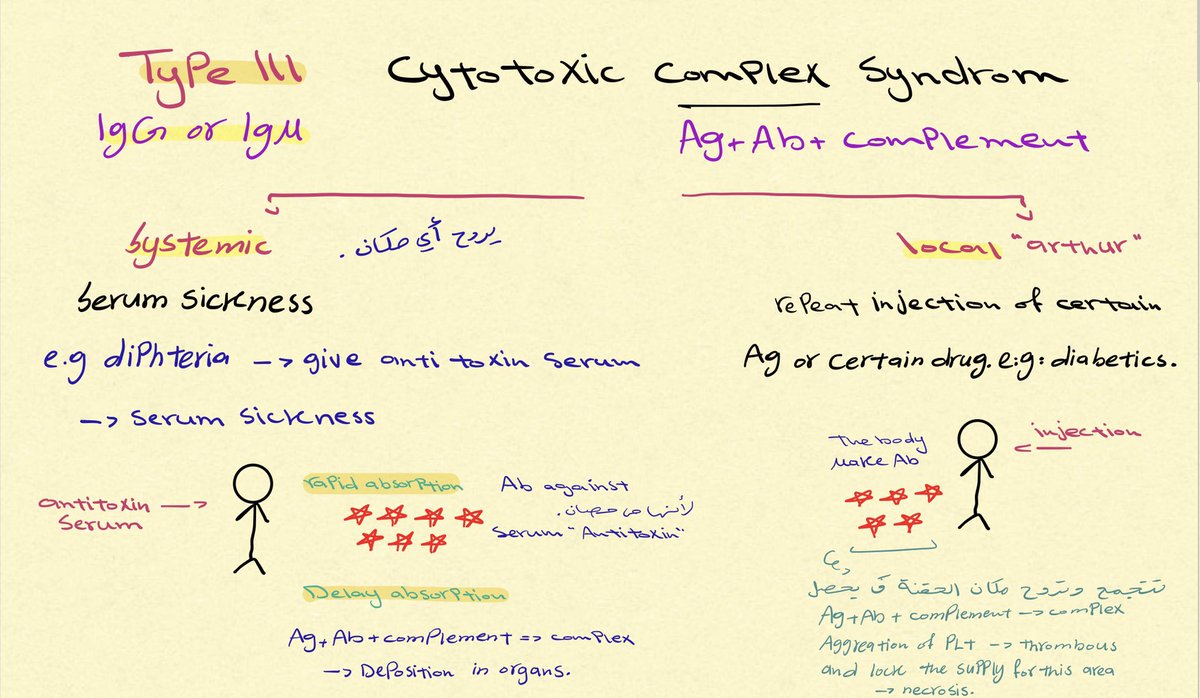 Type III Cytotoxic complex Syndrom
IgG or IgM
Ag+Ab+ complement
Systemic
يروح أي مكان.
local "arthur"
Serum Sickness
e.g diphteria -> give anti toxin serum
-> Serum Sickness
repeat injection of certain
Ag or certain drug. e.g: diabetics.
antitoxin ->
serum
rapid absorption
Ab against
لأنها من حصان.
serum "Antitoxin"
Delay absorption
Ag+Ab+complement => complex
-> Deposition in organs.
The body
make Ab
injection
تتجمع وتروح مكان الحقنة ف يحصل
Ag+Ab+complement -> complex
Aggreation of PLT -> thrombous
and lock the supply for this area
-> necrosis.